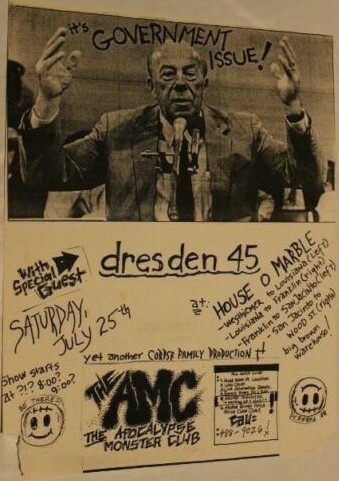 it's
GOVERNMENT
ISSUE!
with
Special
Guest
dresden 45
SATURDAY,
JULY 25th
at:
HOUSE O MARBLE
- WESTHEIMER to Louisiana (left)
- Louisiana to Franklin (right)
- Franklin to San Jacinto (left)
- San Jacinto to
WOOD ST. (right)
big brown
warehouse!
yet another CORPSE FAMILY PRODUCTION!
Show starts
at ?!? 8:00?
9:00?
BE THERE!
THE AMC
THE APOCALYPSE
MONSTER CLUB
Call:
488-9026!